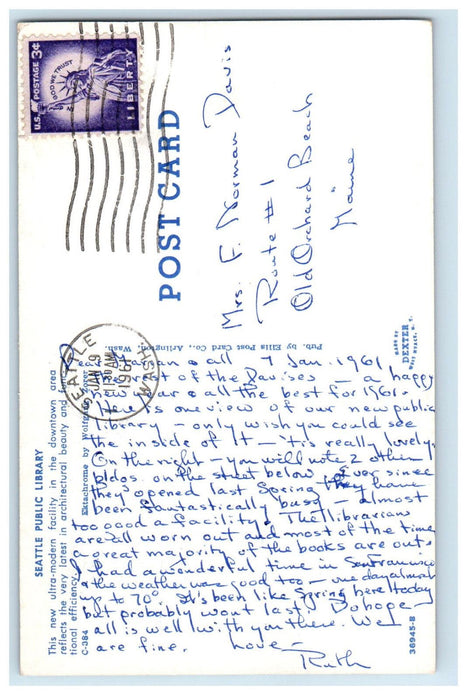 U.S. POSTAGE 3¢
IN GOD WE TRUST
LIBERTY
POST CARD
Mrs. F. Norman Davis
Route #1
Old Orchard Beach
Maine
SEATTLE
JAN 9
11 30 AM
1961
WASH.
Pub. by Ellis Post Card Co., Arlington, Wash.
MADE BY
DEXTER
WEST NYACK, N. Y.
SEATTLE PUBLIC LIBRARY
This new ultra-modern facility in the downtown area
reflects the very latest in architectural beauty and func-
tional efficiency.
C-384
Ektachrome by
36945-B
Dear & all 7 Jan. 1961
of the Davises — a happy
new year & all the best for 1961.
Here is one view of our new public
library — only wish you could see
the inside of It — 'tis really lovely.
On the right — you will note 2 other
bldgs. on the street below. Ever since
they opened last Spring they have
been fantastically busy — almost
too good a facility. The librarians
are all worn out and most of the time
a great majority of the books are out.
I had a wonderful time in San Francisco
& the weather was good too — one day almost
up to 70°. It's been like Spring here today
but probably wont last. Do hope
all is well with you there. We
are fine. Love —
Ruth